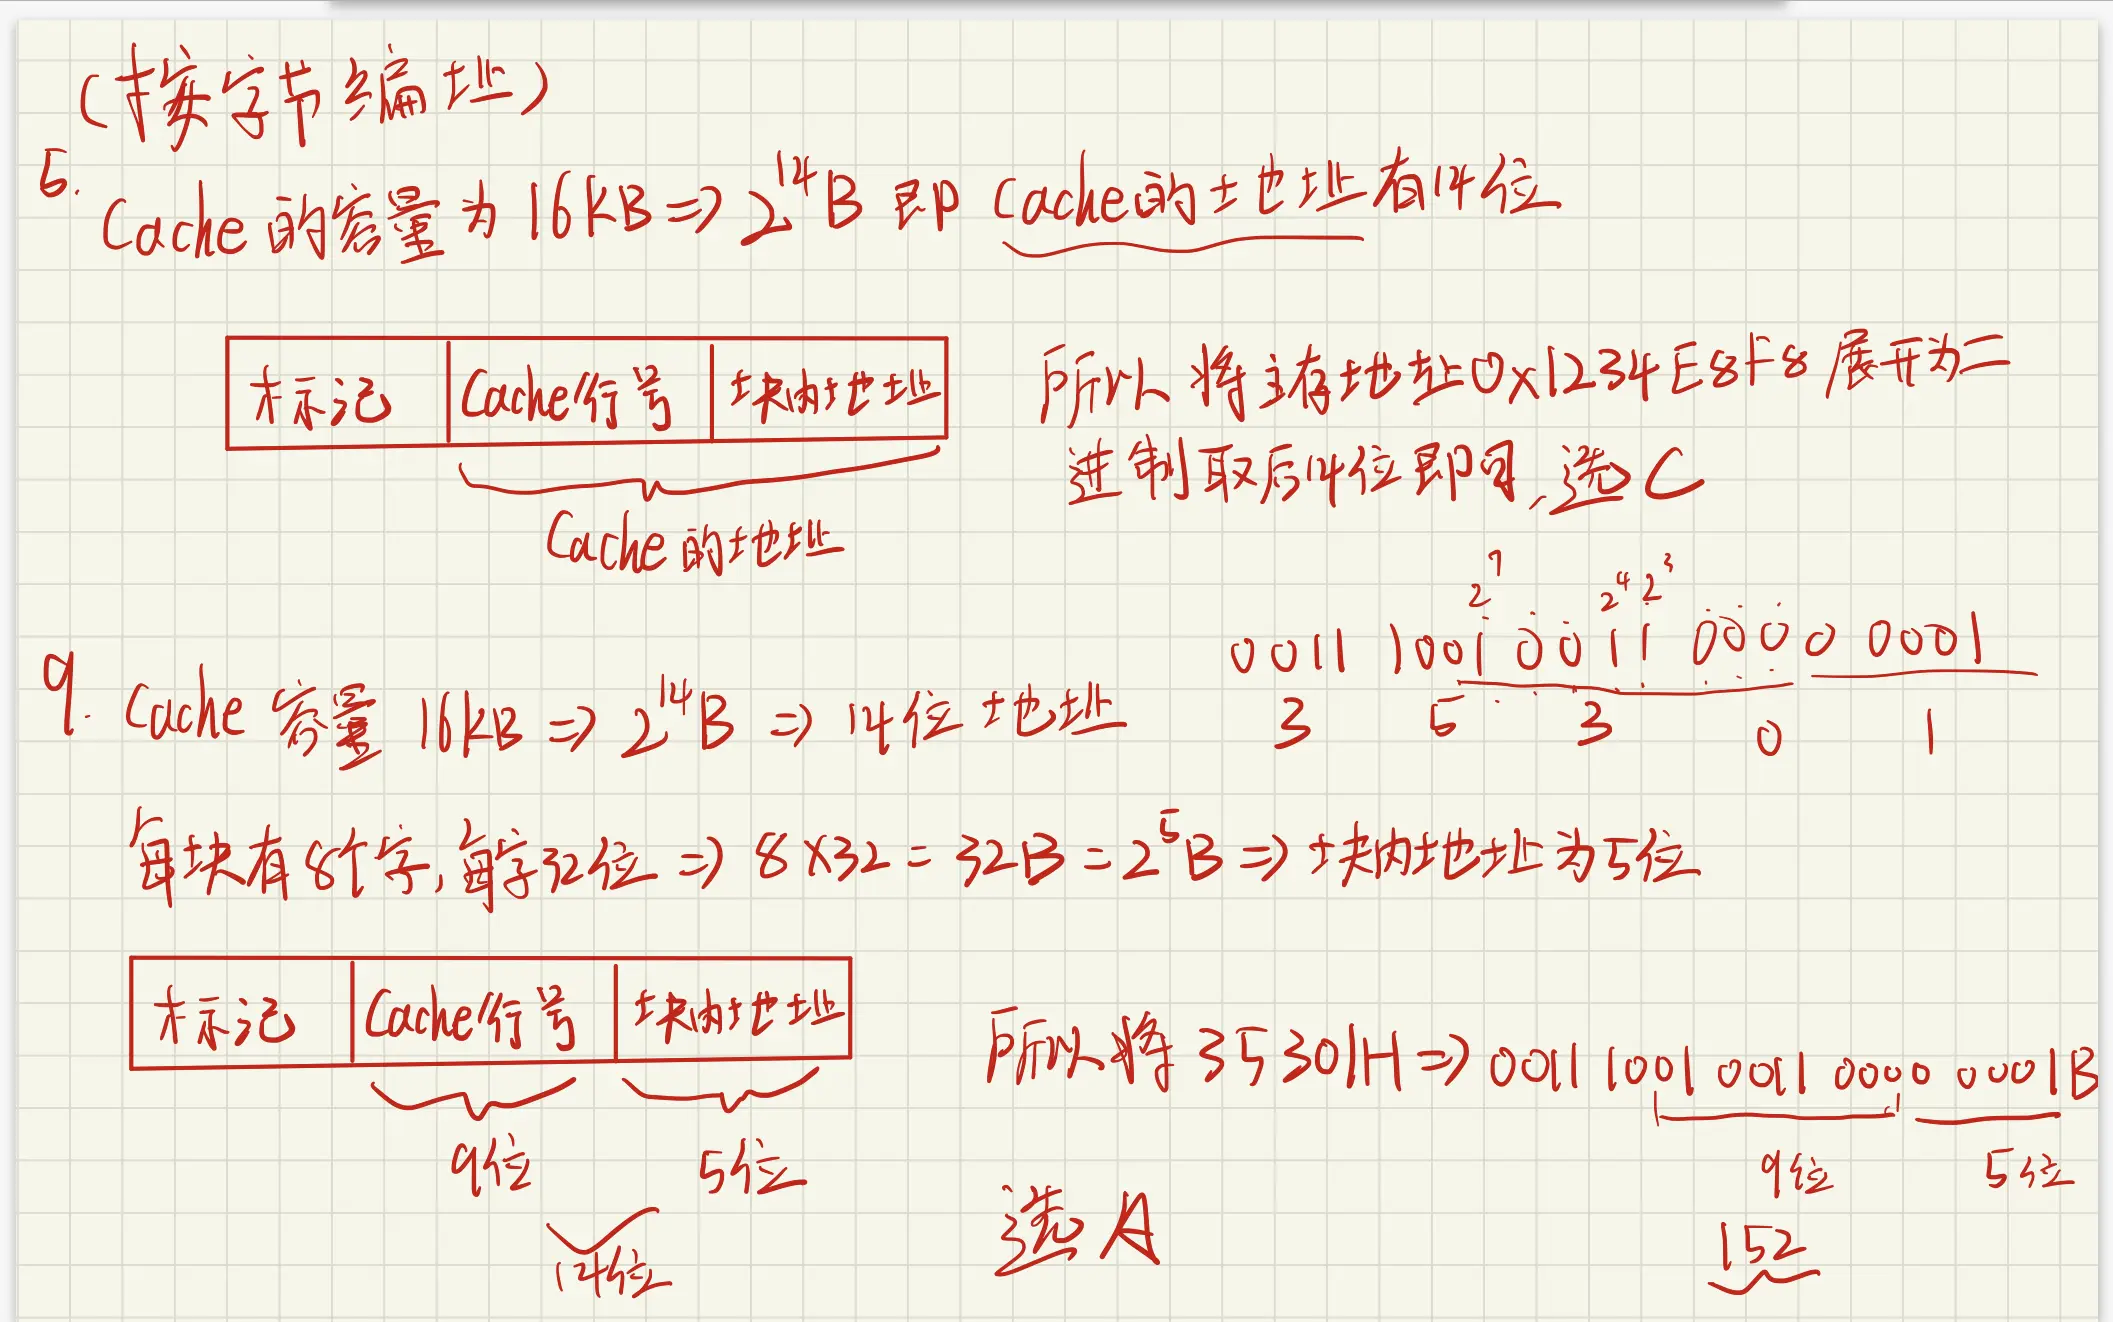 (按字节编址)
5.
Cache的容量为16KB⇒2^14B 即 Cache的地址有14位
标记 Cache行号 块内地址
Cache的地址
所以将主存地址0×1234E8F8展开为二
进制取后14位即可,选C
2^7 2^4 2^3
0011 1001 0011 0000 0001
3 5 3 0 1
9. Cache 容量 16KB ⇒ 2^14B ⇒ 14位地址
每块有8个字,每字32位 ⇒ 8×32 = 32B = 2^5B ⇒ 块内地址为5位
标记 Cache行号 块内地址
9位 5位
14位
所以将 35301H ⇒ 0011 1001 0011 0000 0001B
9位 5位
152
选A